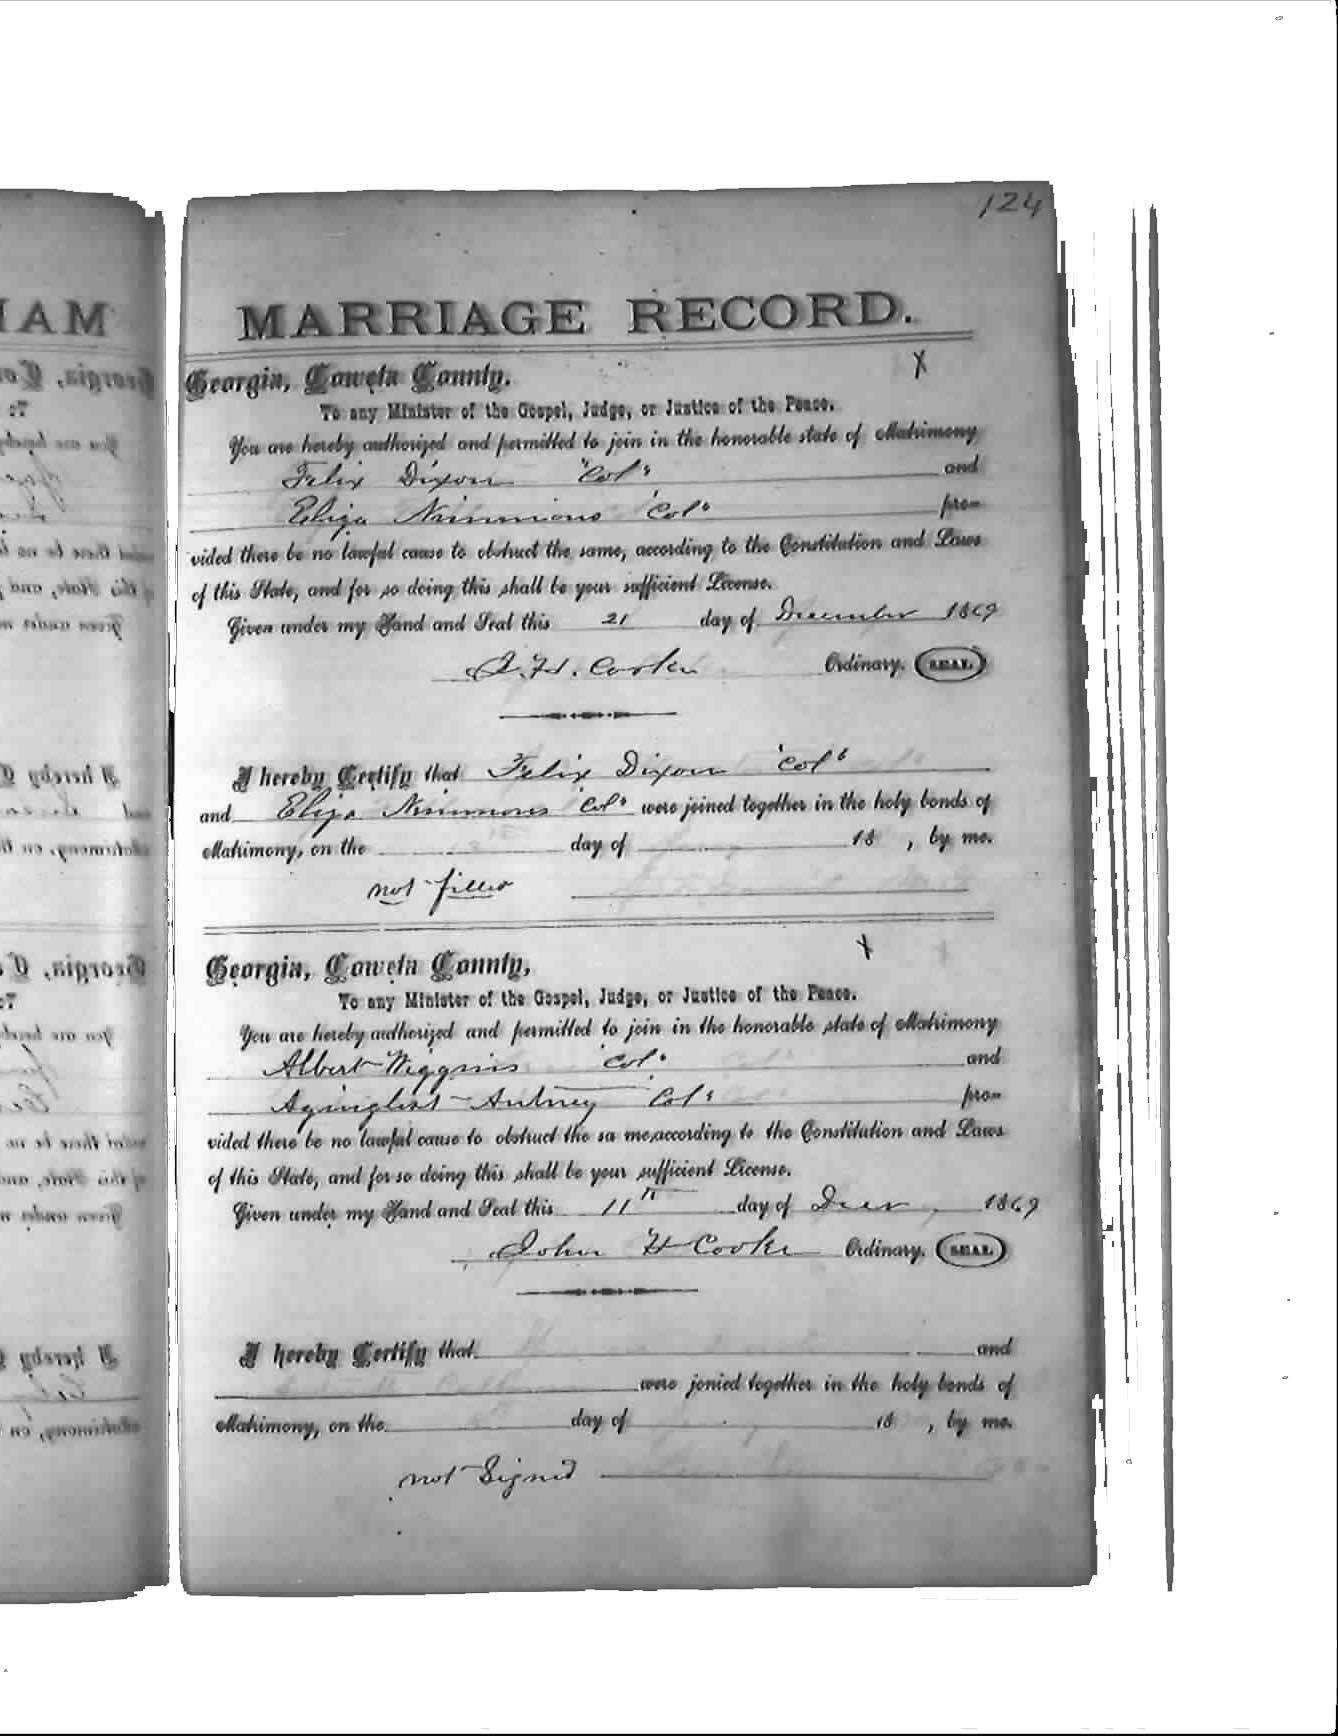 124
MARRIAGE RECORD.
X
Georgia, Coweta County.
To any Minister of the Gospel, Judge, or Justice of the Peace.
You are hereby authorized and permitted to join in the honorable state of Matrimony
Felix Dixon "Col" and
Eliza Nimmons Col" pro-
vided there be no lawful cause to obstruct the same, according to the Constitution and Laws
of this State, and for so doing this shall be your sufficient License.
Given under my Hand and Seal this 21 day of December 1869
J. H. Cooke Ordinary. SEAL.
I hereby Certify that Felix Dixon 'Col'
and Eliza Nimmons Col" were joined together in the holy bonds of
Matrimony, on the day of 18 , by me.
not filled
X
Georgia, Coweta County,
To any Minister of the Gospel, Judge, or Justice of the Peace.
You are hereby authorized and permitted to join in the honorable state of Matrimony
Albert Wiggins 'Col' and
Col" pro-
vided there be no lawful cause to obstruct the sa me,according to the Constitution and Laws
of this State, and for so doing this shall be your sufficient License.
Given under my Hand and Seal this 11th day of Decr 1869
John H Cooke Ordinary. SEAL.
I hereby Certify that and
were jonied together in the holy bonds of
Matrimony, on the day of 18 , by me.
not Signed